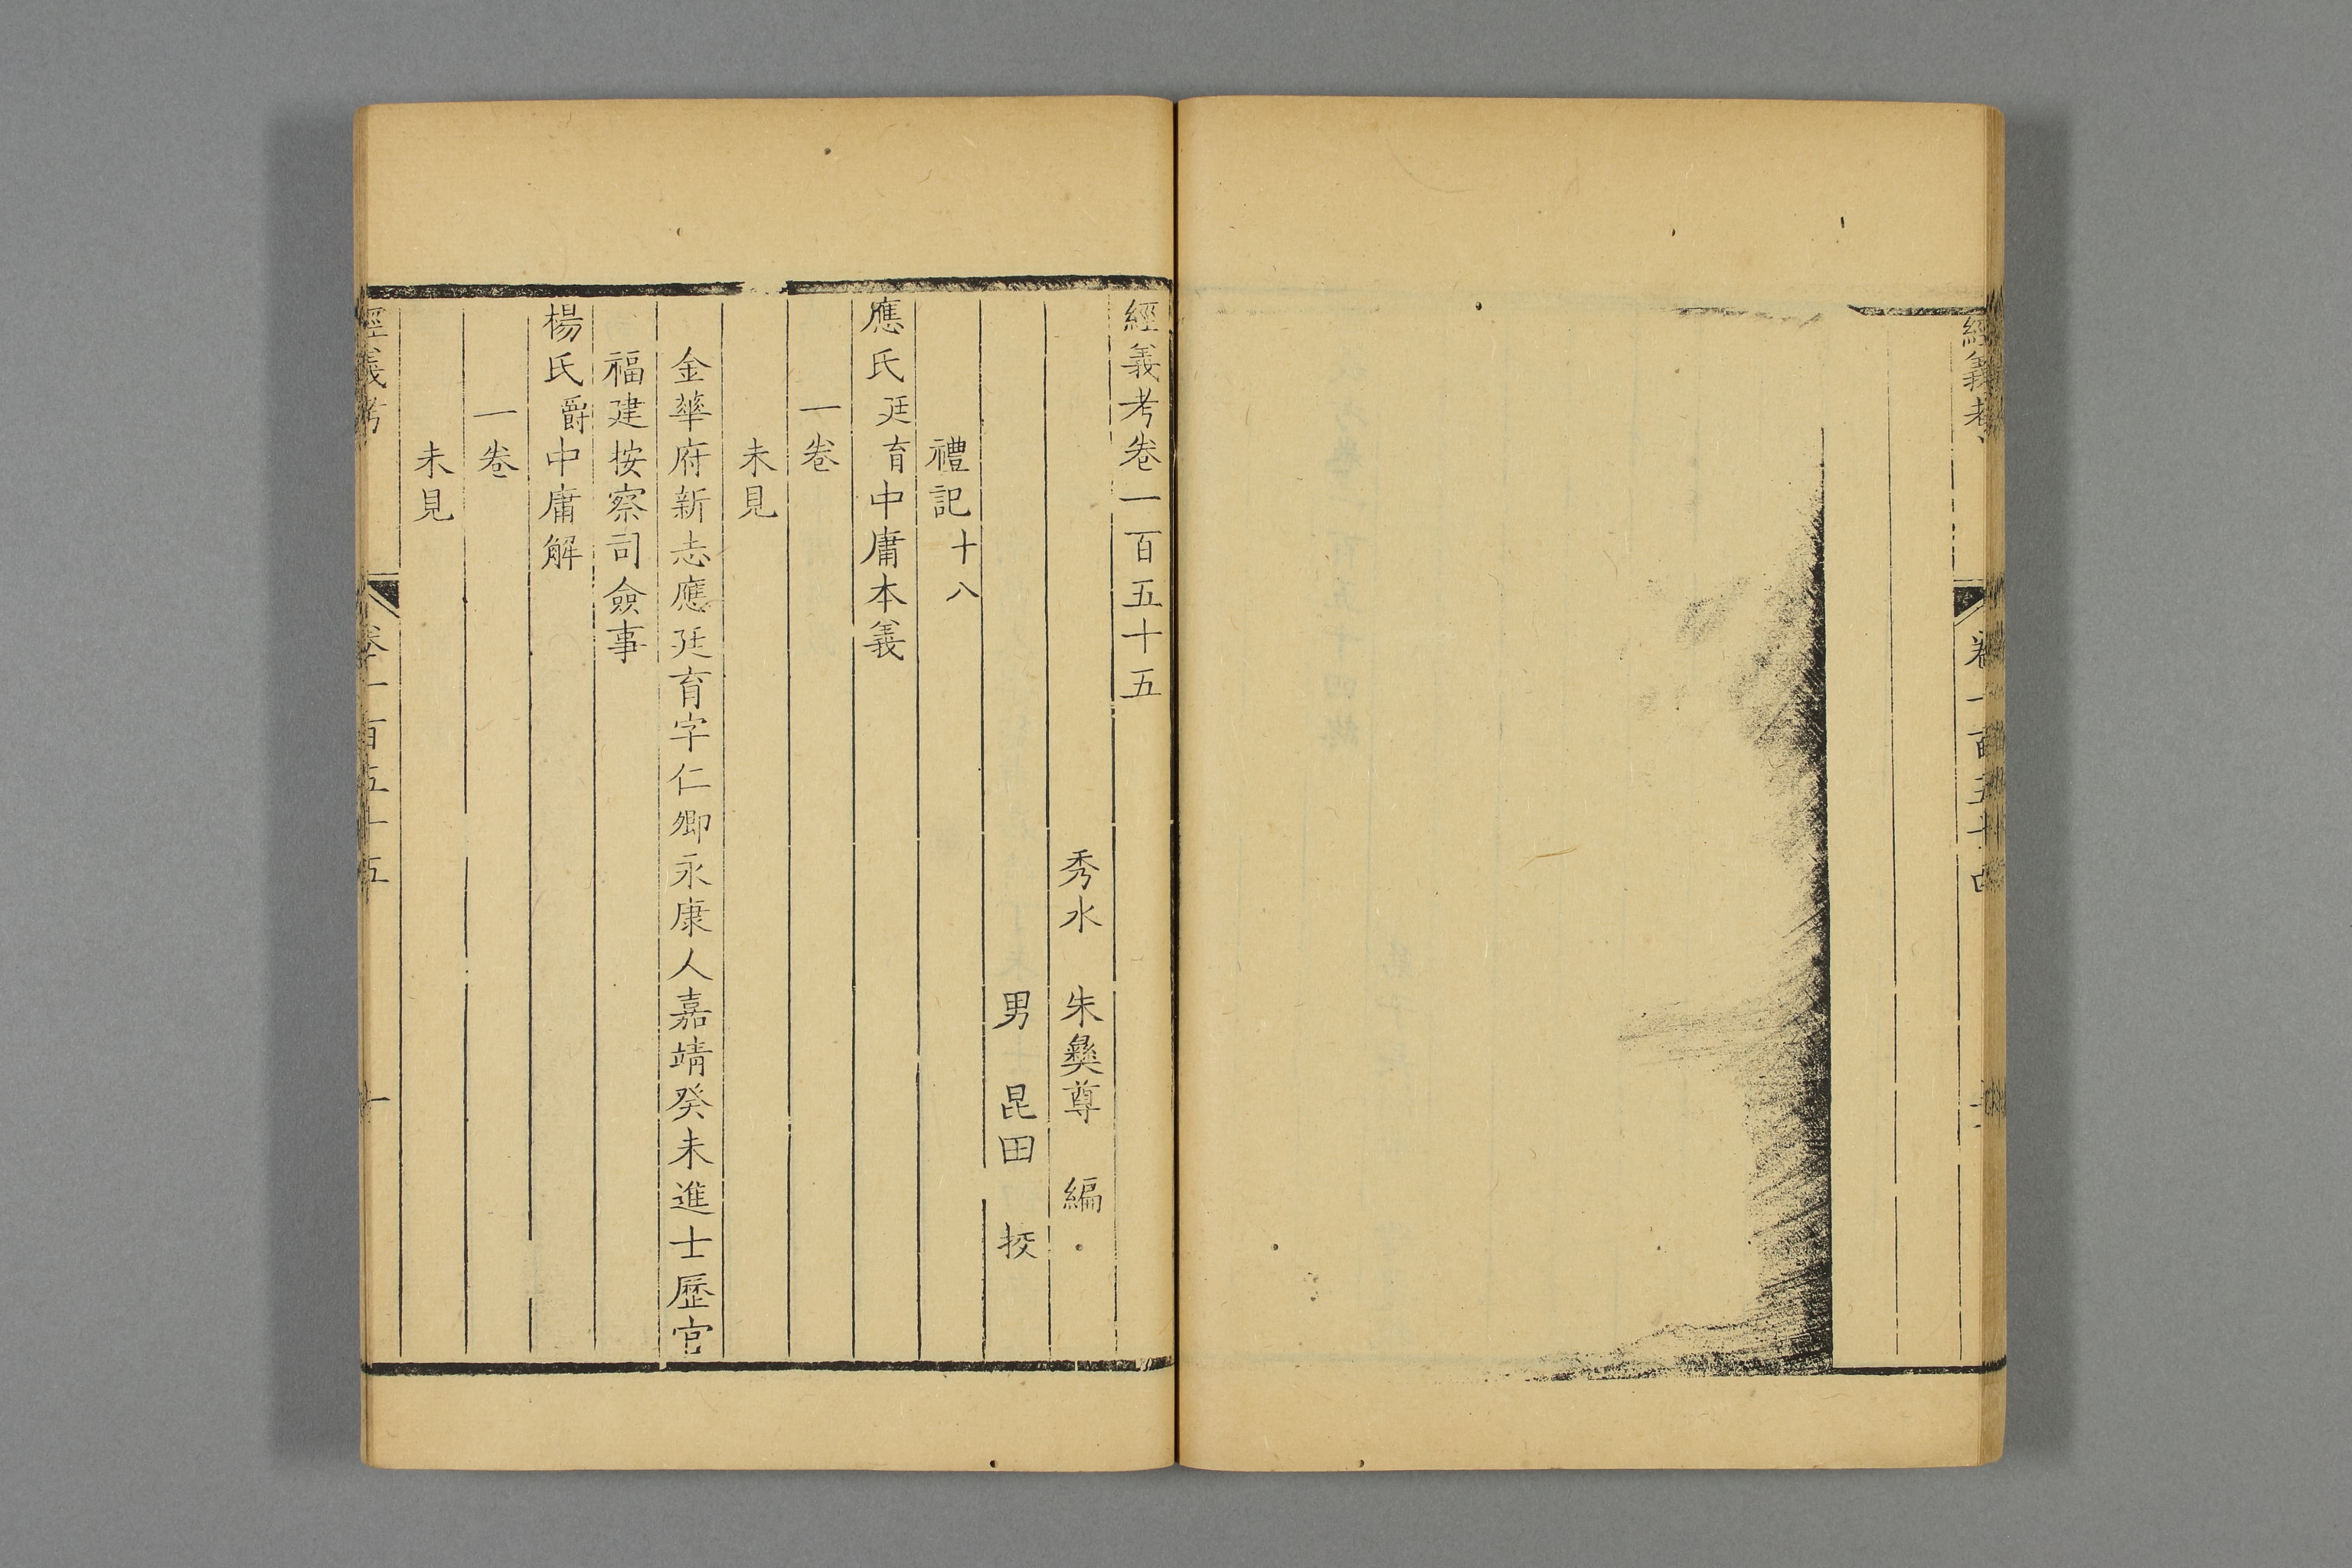 經義考
卷一百五十四
經義考卷一百五十五
秀水 朱彝尊 編
男 昆田 挍
禮記十八
應氏廷育中庸本義
一卷
未見
金華府新志應廷育字仁卿永康人嘉靖癸未進士歷官
福建按察司僉事
楊氏爵中庸解
一卷
未見
經義考
卷一百五十五